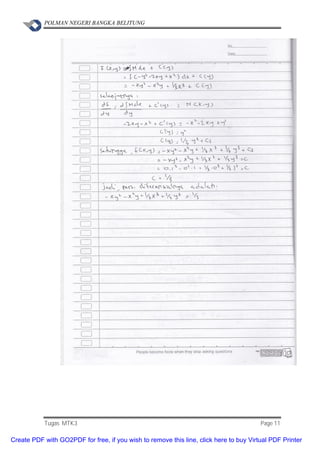 POLMAN NEGERI BANGKA BELITUNG
No.
Date.
F (x,y) = ∫ M dx + C(y)
= ∫ (-y² - 2xy + x²) dx + C(y)
= -xy² - x²y + 1/3 x³ + C(y)
Selanjutnya :
df ; d ∫ M dx + C'(y) ; N (x,y)
dy dy
-2xy - x² + C'(y) = -x² - 2xy + y²
C'(y) ; y²
C(y) ; 1/3 y³ + C1
Sehingga , f(x,y) ; -xy² - x²y + 1/3 x³ + 1/3 y³ + C1
= -xy² - x²y + 1/3 x³ + 1/3 y³ = C
= -0.1² - 0².1 + 1/3 . 0³ + 1/3 1³ = C
C = 1/3
Jadi pers. differensialnya adalah :
-xy² - x²y + 1/3 x³ + 1/3 y³ = 1/3
People become fools when they stop asking questions
Tugas MTK3 Page 11
Create PDF with GO2PDF for free, if you wish to remove this line, click here to buy Virtual PDF Printer